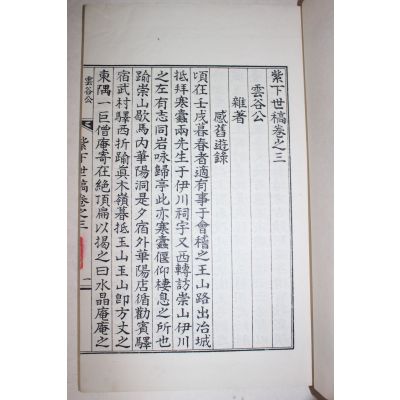 紫下世稿卷之三
雲谷公
雜著
感舊遊錄
頃在壬戌暮春者適有事于會稽之王山路出冶城
抵拜寒蠹兩先生于伊川祠宇又西轉訪崇山伊川
之左有志同岩咏歸亭此亦寒蠹偃仰棲息之所也
踰崇山歇馬內華陽洞是夕宿外華陽店循勸賓驛
宿武村驛西折踰眞木嶺暮抵玉山玉山卽方丈之
東隅一巨僧庵寄在絶頂扁以揭之曰水晶庵庵之
雲谷公
紫下世稿卷之三
一